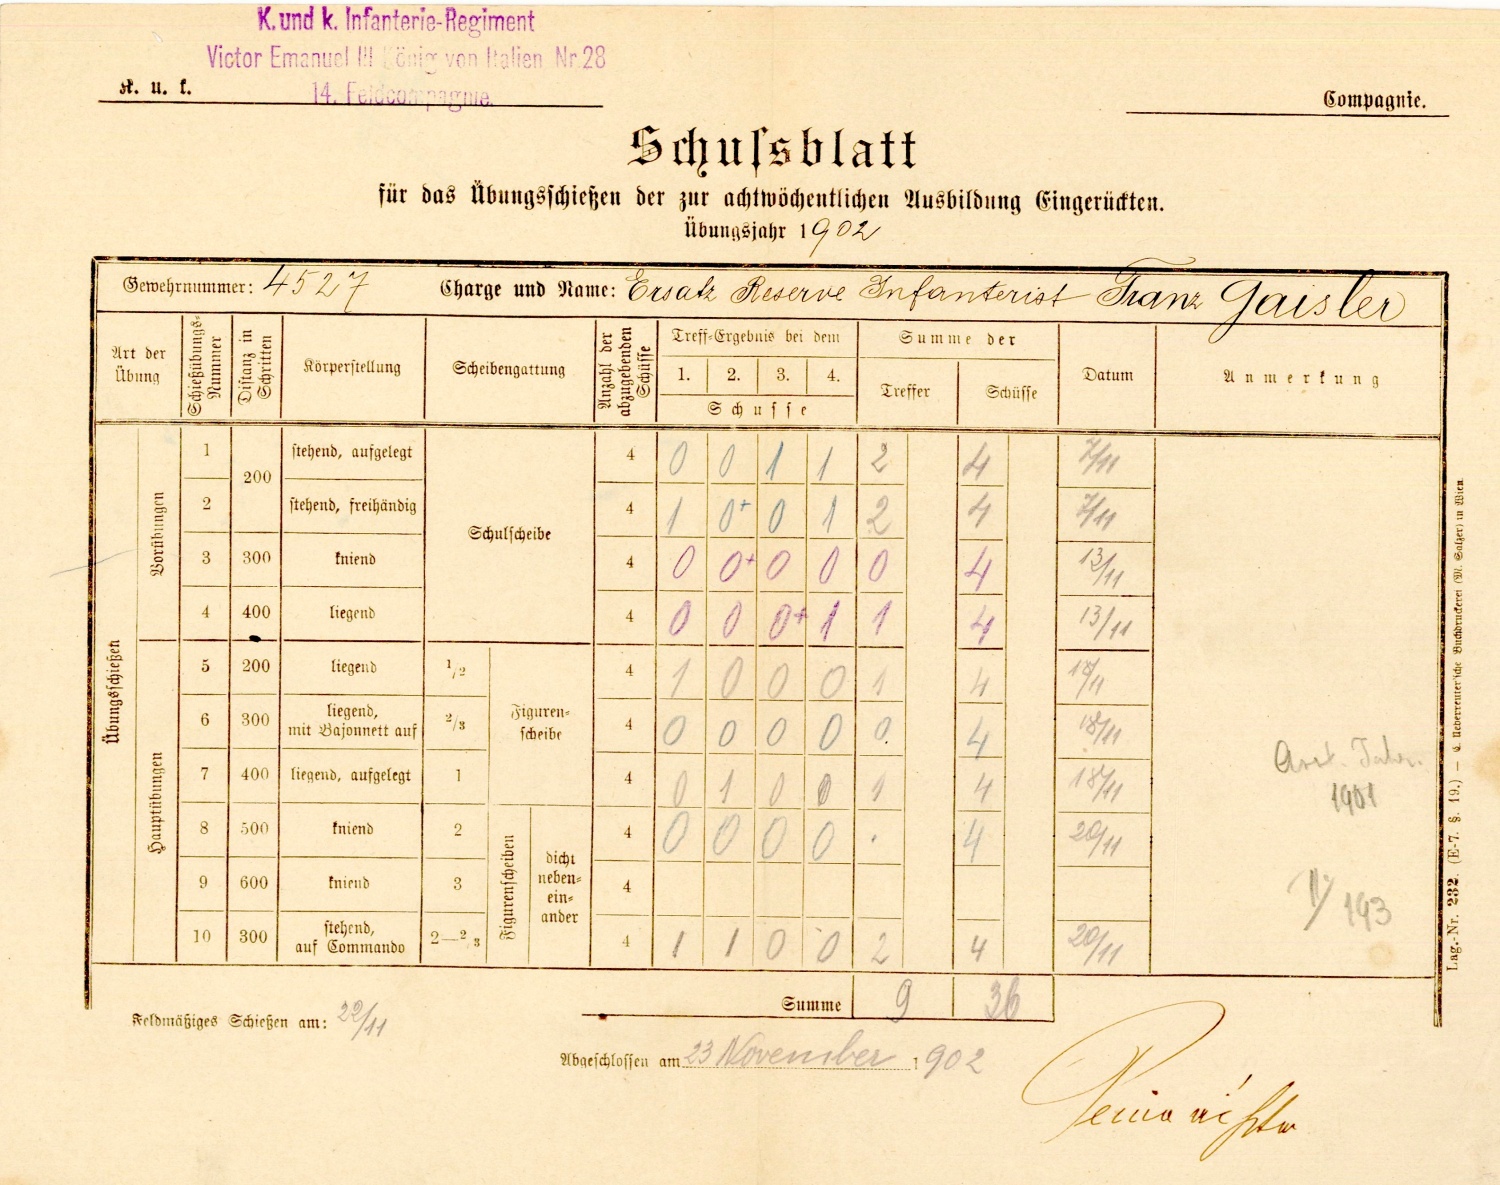 K. und k. Infanterie-Regiment
Victor Emanuel III König von Italien Nr. 28
14. Feldcompagnie.
K. u. k.
Compagnie.
Schussblatt
für das Übungsschießen der zur achtwöchentlichen Ausbildung Eingerückten.
Übungsjahr 1902
Gewehrnummer: 4527 Charge und Name: Ersatz Reserve Infanterist Franz Gaisler
Art der Übung
Schießübungs-Nummer
Distanz in Schritten
Körperstellung
Scheibengattung
Anzahl der abzugebenden Schüsse
Treff-Ergebnis bei dem
1. 2. 3. 4.
Schusse
Summe der
Treffer Schüsse
Datum
Anmerkung
Übungsschießen
Vorübungen
1 200 stehend, aufgelegt Schulscheibe 4 0 0 1 1 2 4 7/11
2 stehend, freihändig 4 1 0+ 0 1 2 4 7/11
3 300 kniend 4 0 0+ 0 0 0 4 13/11
4 400 liegend 4 0 0 0+ 1 1 4 13/11
Hauptübungen
5 200 liegend 1/2 Figuren-scheibe 4 1 0 0 0 1 4 18/11
6 300 liegend, mit Bajonnett auf 2/3 4 0 0 0 0 0. 4 18/11
7 400 liegend, aufgelegt 1 4 0 1 0 0 1 4 18/11
Figurenscheiben
dicht neben-ein-ander
8 500 kniend 2 4 0 0 0 0 . 4 20/11
9 600 kniend 3 4
10 300 stehend, auf Commando 2—2/3 4 1 1 0 0 2 4 20/11
1901
193
Summe 9 36
Feldmäßiges Schießen am: 22/11
Abgeschlossen am 23 November 1902
Lag.-Nr. 232. (E-7. §. 19.) — C. Ueberreuter'sche Buchdruckerei (M. Salzer) in Wien.